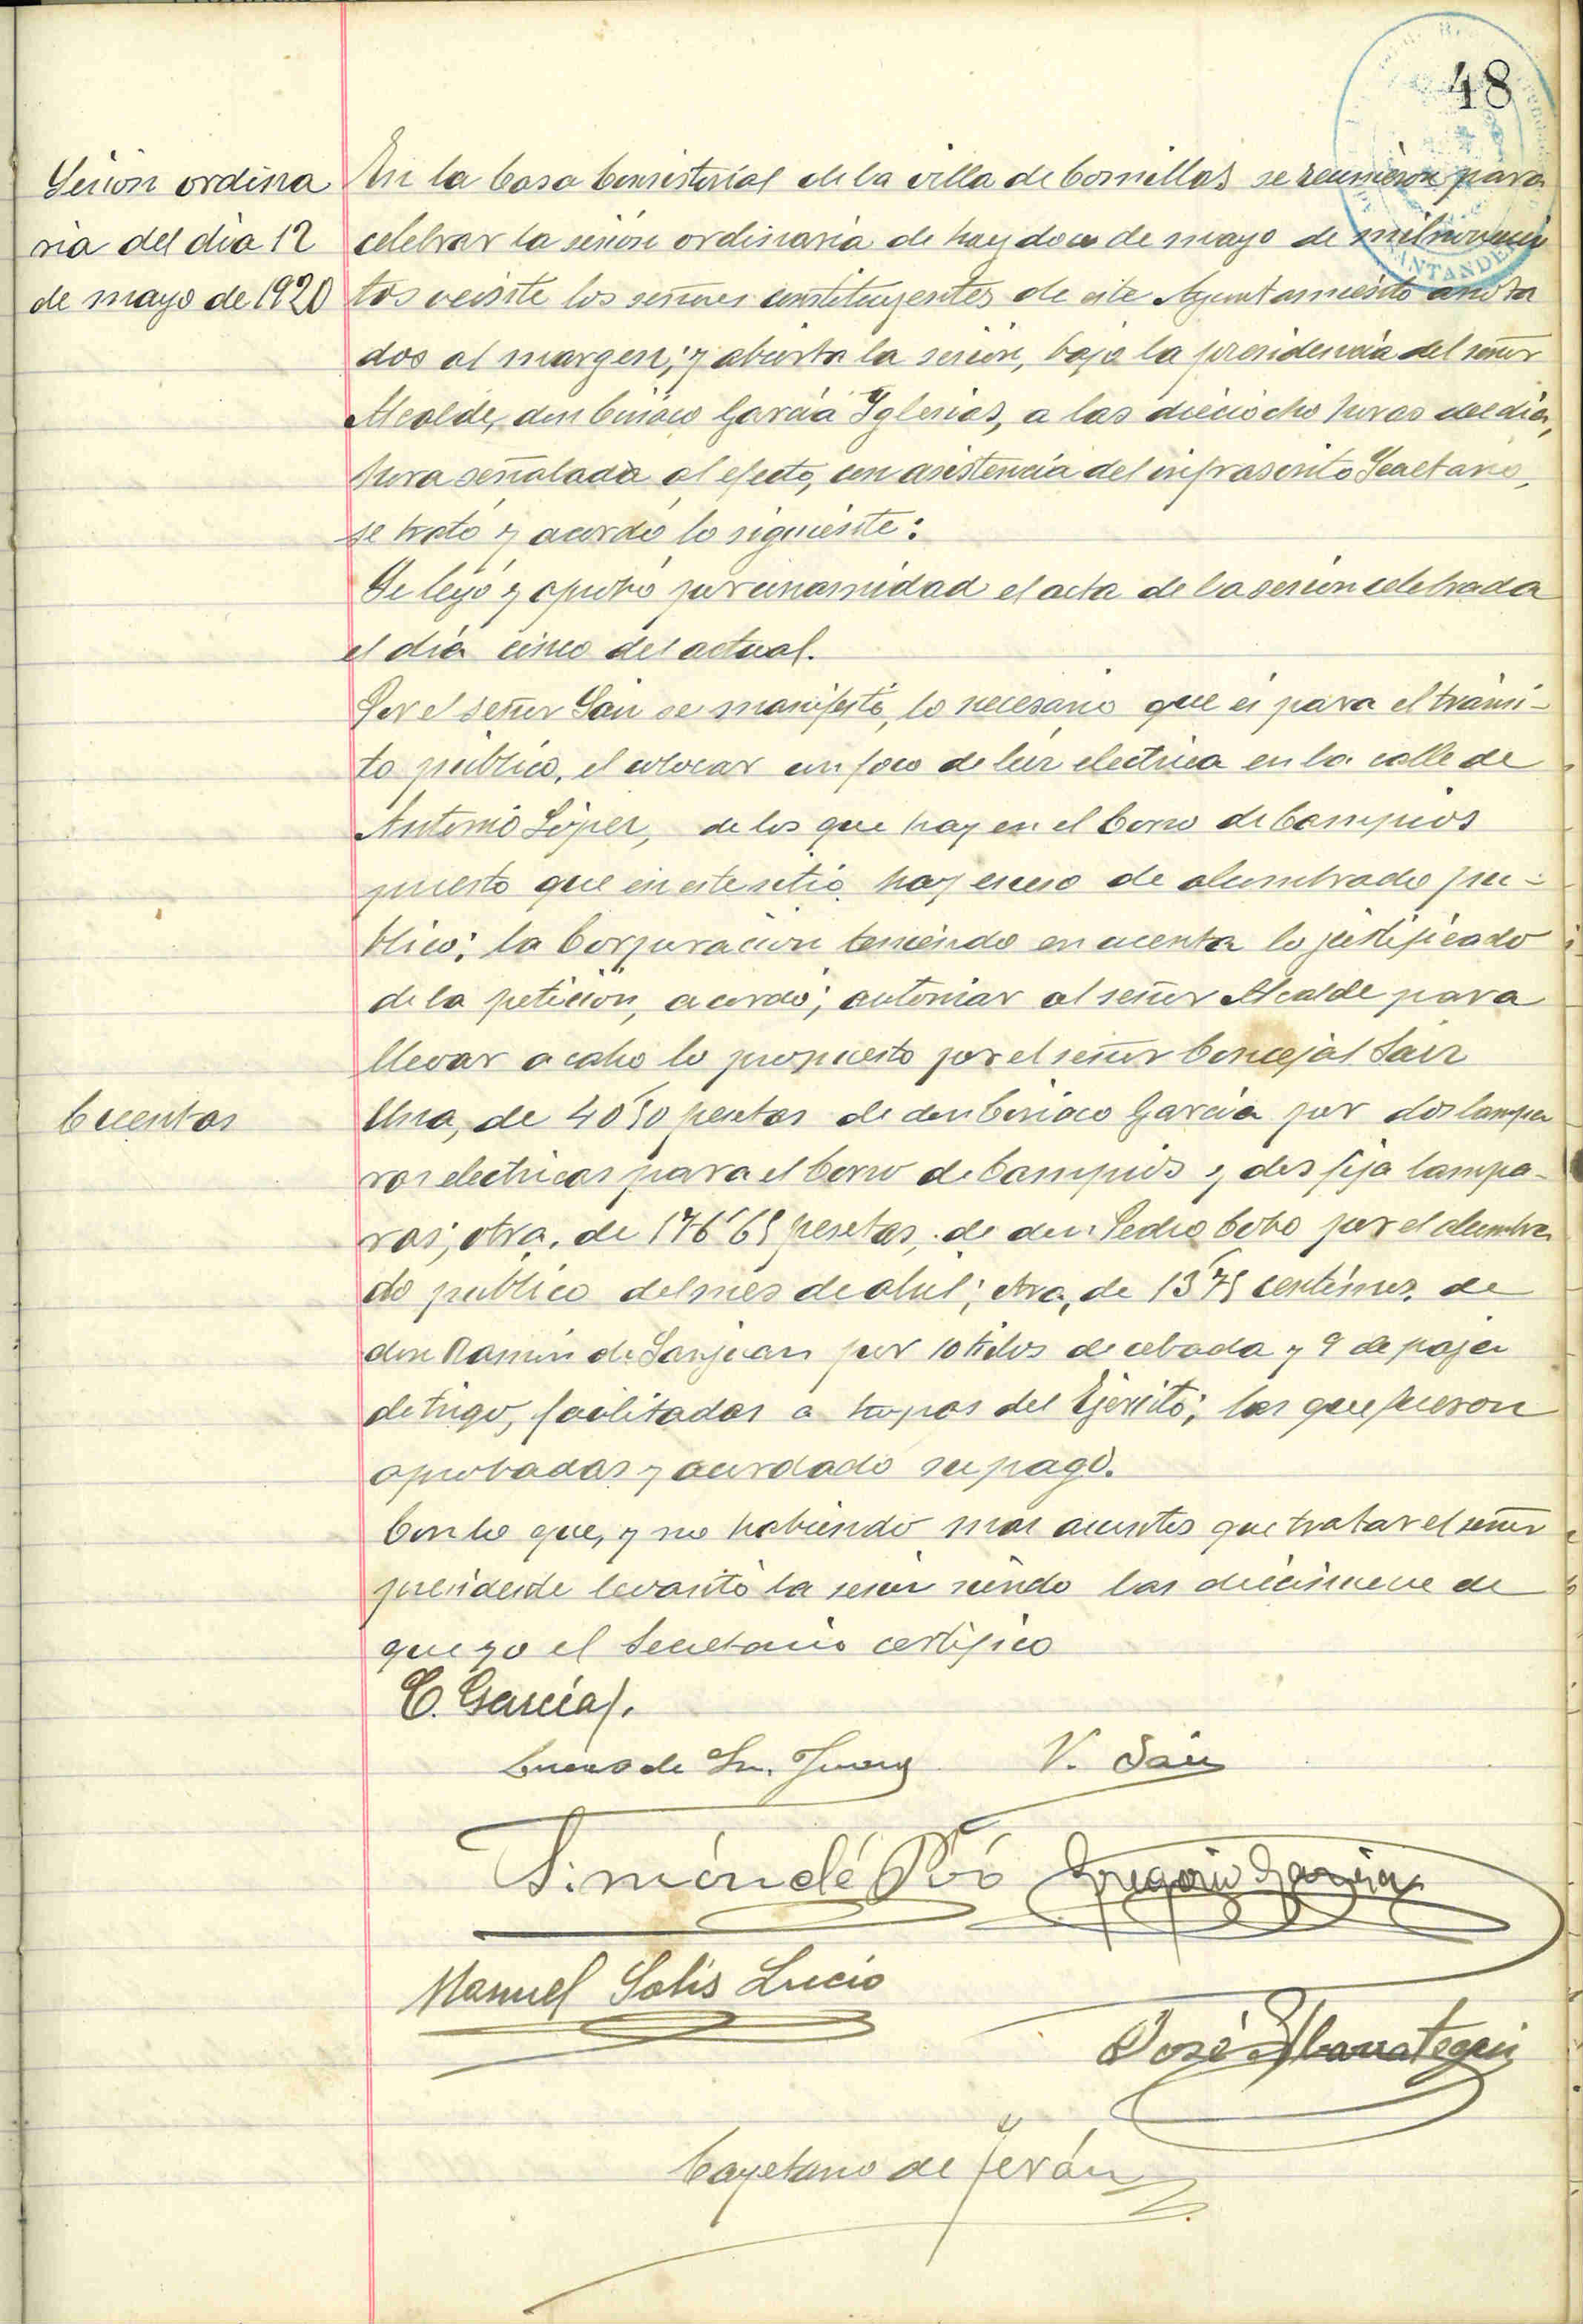 48
Sesión ordina
ria del dia 12
de mayo de 1920
En la Casa Consistorial de la villa de Comillas se reunieron para
celebrar la sesión ordinaria de hoy doce de mayo de mil novecien
tos veinte los señores constituyentes de este Ayuntamiento anota
dos al margen; y abierta la sesión, bajo la presidencia del señor
Alcalde, don Ciriaco García Yglesias, a las dieciocho horas del dia,
hora señalada al efecto, con asistencia del infrascrito Secretario,
se trató y acordó lo siguiente:
Se leyó y aprobó por unanimidad el acta de la sesión celebrada
el día cinco del actual.
Por el señor Sáiz se manifestó, lo necesario que es para el tránsi-
to público, el colocar un foco de luz electrica en la calle de
Antonio López, de los que hay en el Corro de Campios
puesto que en este sitio hay exceso de alumbrado pu-
blico; la Corporación teniendo en cuenta lo justificado
de la petición, acordó; autorizar al señor Alcalde para
llevar a cabo lo propuesto por el señor Concejal Saiz
Cuentas
Una, de 40'50 pesetas de don Ciriaco García por dos lampa
ras electricas para el Corro de Campios y dos fija lampa-
ras; otra, de 176'65 pesetas, de don Pedro Cobo por el alumbra
do publico del mes de abril; otra, de 13'75 centimos, de
don Ramón de Sanjuan por 10 kilos de cebada y 9 de paja
de trigo, facilitadas a tropas del Ejército; las que fueron
aprobadas y acordado su pago.
Con lo que, y no habiendo mas asuntos que tratar el señor
presidente levantó la sesión siendo las diecinueve de
que yo el Secretario certifico
C. García
de Sn. Juan V. Saiz
Simón dé Rió Gregorio García
Manuel Solis Lucio
José Ybarrategui
Cayetano de Terán
SANTANDER